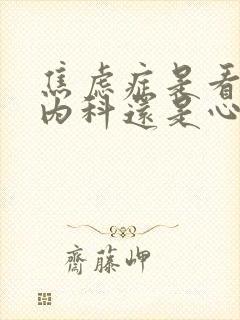 焦虑症是看
内科还是心
齋藤岬